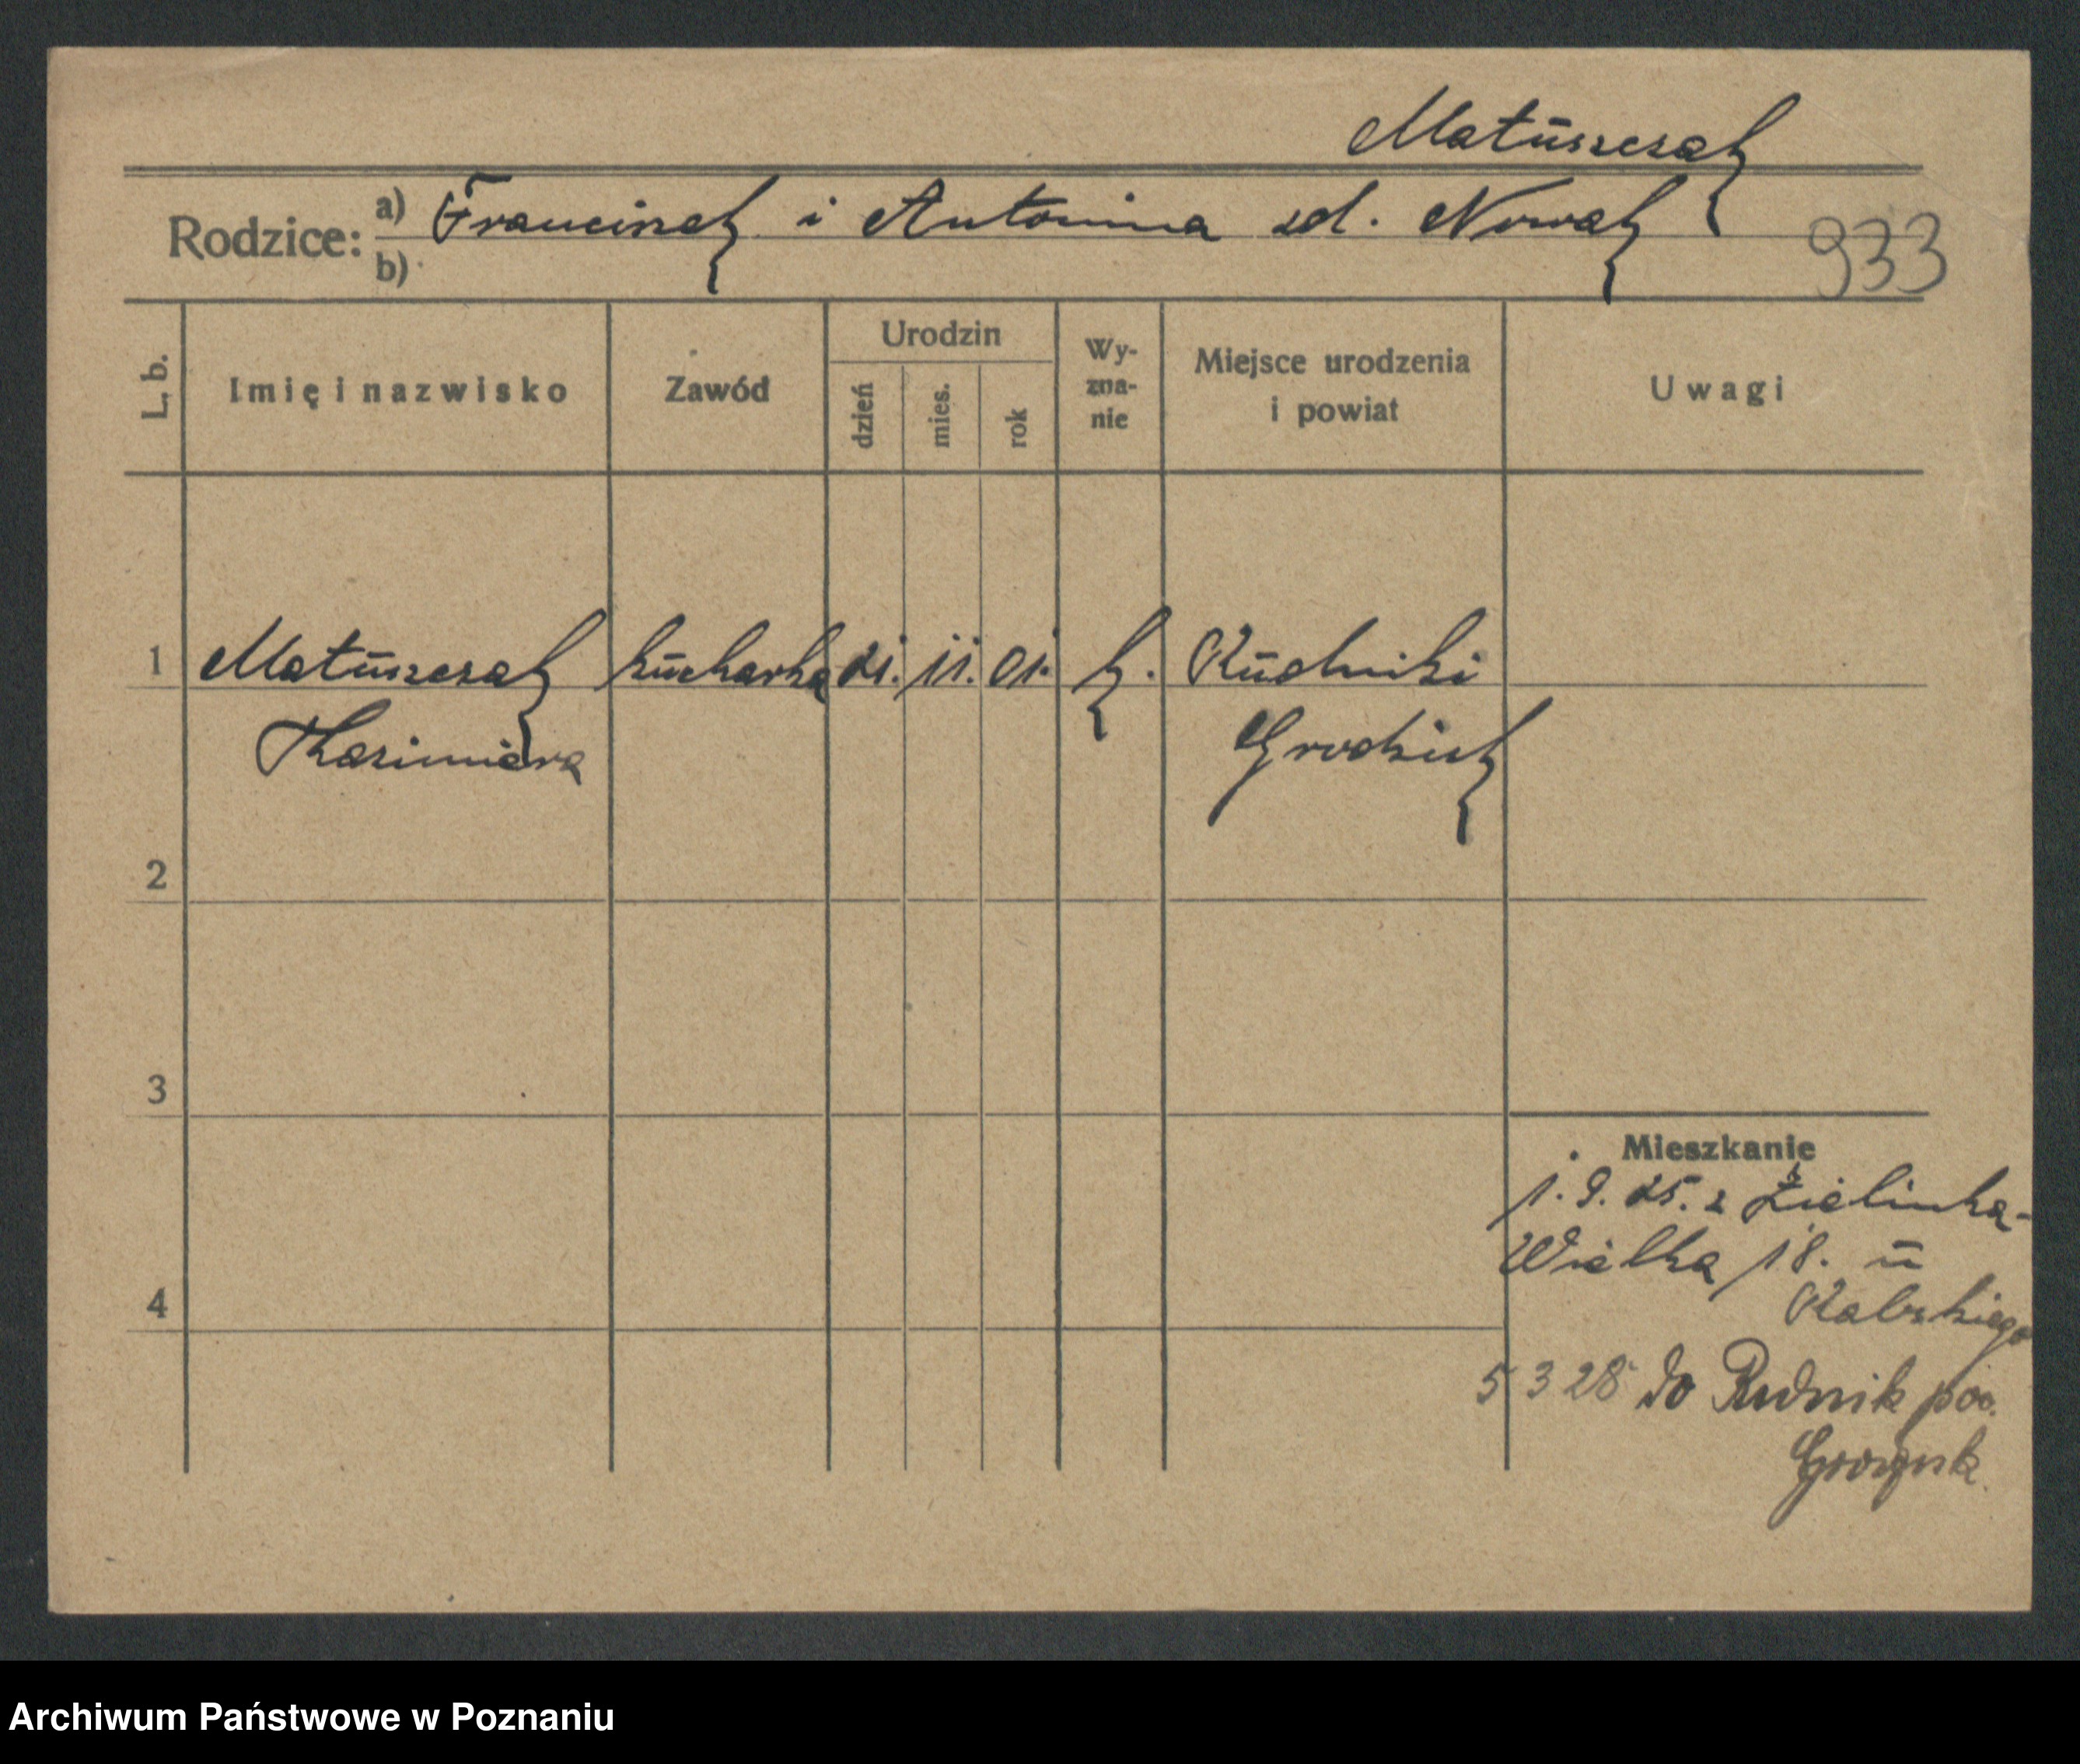 Matuszczak
Rodzice: a) Franciszek i Antonina zd. Nowak
b)
933
L. b.
Imię i nazwisko
Zawód
Urodzin
dzień
mies.
rok
Wy-
zna-
nie
Miejsce urodzenia
i powiat
Uwagi
1 Matuszczak kucharka 21. 11. 01. k. Rudniki
Kazimiera Grodzisk
2
3
4
Mieszkanie
1. 9. 25. z
Wielka 18. u
5 3 28 do Rudnik pow.
Archiwum Państwowe w Poznaniu